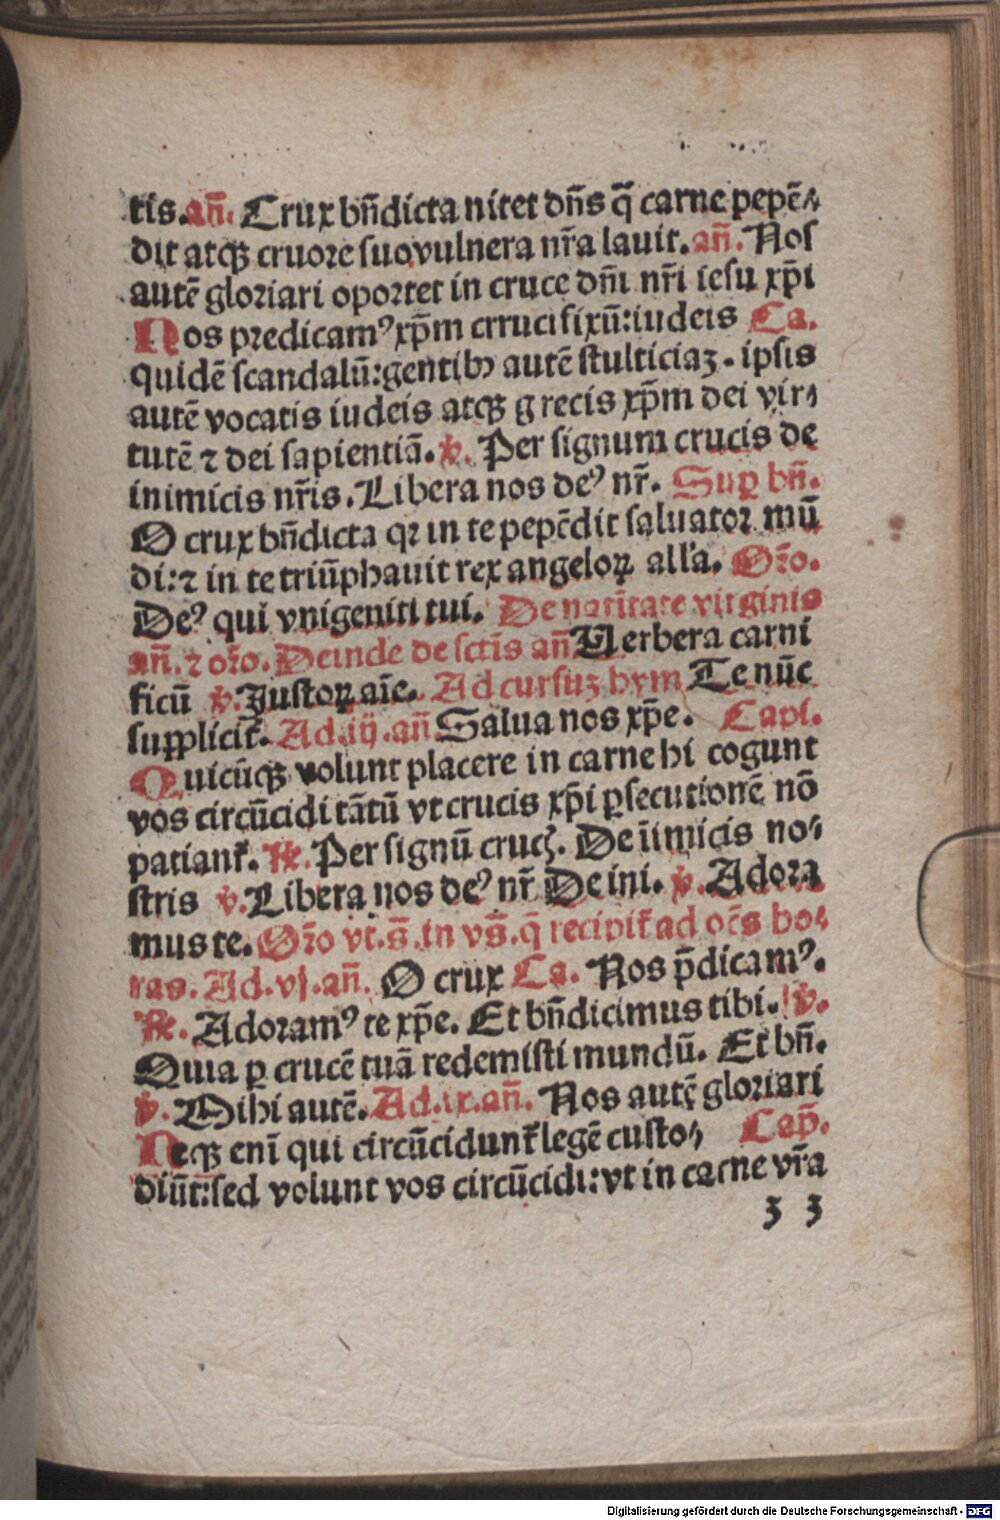 tis. an̄. Crux bn̄dicta nitet dn̄s q̄ carne pepē⸗
dit atqꝫ cruore suo vulnera nr̄a lauit. an̄. Nos
autē gloriari oportet in cruce dn̄i nr̄i iesu xp̄i
Nos predicamꝰ xp̄m crrucifixū: iudeis Ca.
quidē scandalū: gentibꝰ autē stulticiaꝫ. ipsis
autē vocatis iudeis atqꝫ grecis xp̄m dei vir⸗
tutē ⁊ dei sapientiā. ℣. Per signum crucis de
inimicis nr̄is. Libera nos deꝰ nr̄. Suꝑ bn̄.
O crux bn̄dicta qꝛ in te pepēdit saluator mū
di: ⁊ in te triūphauit rex angeloꝝ all'a. Oꝛ̄o.
Deꝰ qui vnigeniti tui. De natītate virginis
an̄. ⁊ oꝛ̄o. Deinde de sctīs an̄ Verbera carni
ficū ℣. Justoꝝ aīe. Ad cursuꝫ hym Te nūc
supplicit᷑. Ad .iij. an̄ Salua nos xp̄e. Capl.
Quicūqꝫ volunt placere in carne hi cogunt
vos circūcidi tātū vt crucis xp̄i ꝑsecutionē nō
patiant᷑. ℟. Per signū crucꝭ. De īimicis no⸗
stris ℣. Libera nos deꝰ nr̄ De ini. ℣. Adora
mus te. Oꝛ̄o vt. s̄. in vs̄. q̄ recipit᷑ ad oēs ho⸗
ras. Ad .vj. an̄. O crux Ca. Nos p̄dicamꝰ.
℟. Adoramꝰ te xp̄e. Et bn̄dicimus tibi. ℣.
Quia ꝑ crucē tuā redemisti mundū. Et bn̄.
℣. Mihi autē. Ad .ix. an̄. Nos autē gloriari
Neqꝫ enī qui circūcidunt᷑ legē custo⸗ Cap̄.
diūt: sed volunt vos circūcidi: vt in carne vr̄a
ꝫ ꝫ
Digitalisierung gefördert durch die Deutsche Forschungsgemeinschaft - DFG